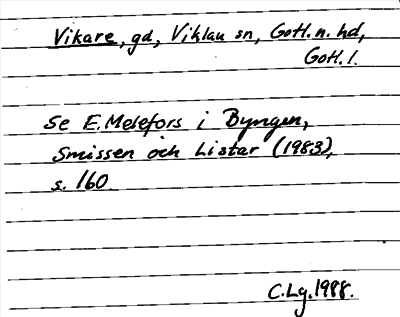 Vikare, gd, Viklau sn, Gotl. n. hd,
Gotl. l.
Se E. Melefors i Byngen,
Smissen och Listar (1983),
s. 160
C.Lg. 1988.